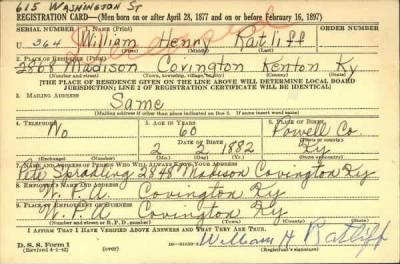 615 WASHINGTON ST
REGISTRATION CARD—(Men born on or after April 28, 1877 and on or before February 16, 1897)
SERIAL NUMBER 1. NAME (Print) ORDER NUMBER
U 364 William Henry Ratliff
2. PLACE OF RESIDENCE (Print)
2868 Madison Covington Kenton Ky
(Number and street) (Town, township, village, or city) (County) (State)
[THE PLACE OF RESIDENCE GIVEN ON THE LINE ABOVE WILL DETERMINE LOCAL BOARD
JURISDICTION; LINE 2 OF REGISTRATION CERTIFICATE WILL BE IDENTICAL]
3. MAILING ADDRESS
Same
(Mailing address if other than place indicated on line 2. If same insert word same)
4. TELEPHONE 5. AGE IN YEARS 6. PLACE OF BIRTH
No 60 Powell Co
DATE OF BIRTH (Town or county)
2 2 1882 Ky
(Exchange) (Number) (Mo.) (Day) (Yr.) (State or country)
7. NAME AND ADDRESS OF PERSON WHO WILL ALWAYS KNOW YOUR ADDRESS
Pete Spradling 2848 Madison Covington Ky.
8. EMPLOYER'S NAME AND ADDRESS
W. P. A. Covington Ky
9. PLACE OF EMPLOYMENT OR BUSINESS
W. P. A Covington Ky
(Number and street or R. F. D. number) (Town) (County) (State)
I AFFIRM THAT I HAVE VERIFIED ABOVE ANSWERS AND THAT THEY ARE TRUE.
D. S. S. Form 1
(Revised 4-1-42) (over) William H Ratliff